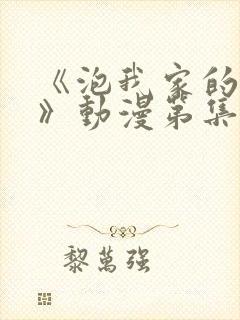 《泡我家的
》動漫第集
黎萬強